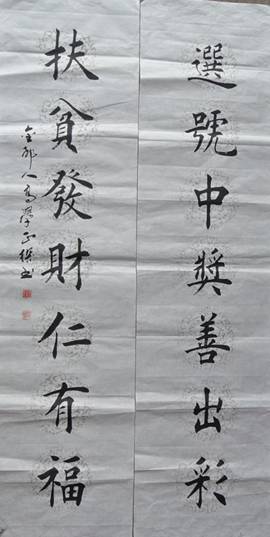 選號中獎善出彩
扶貧發財仁有福